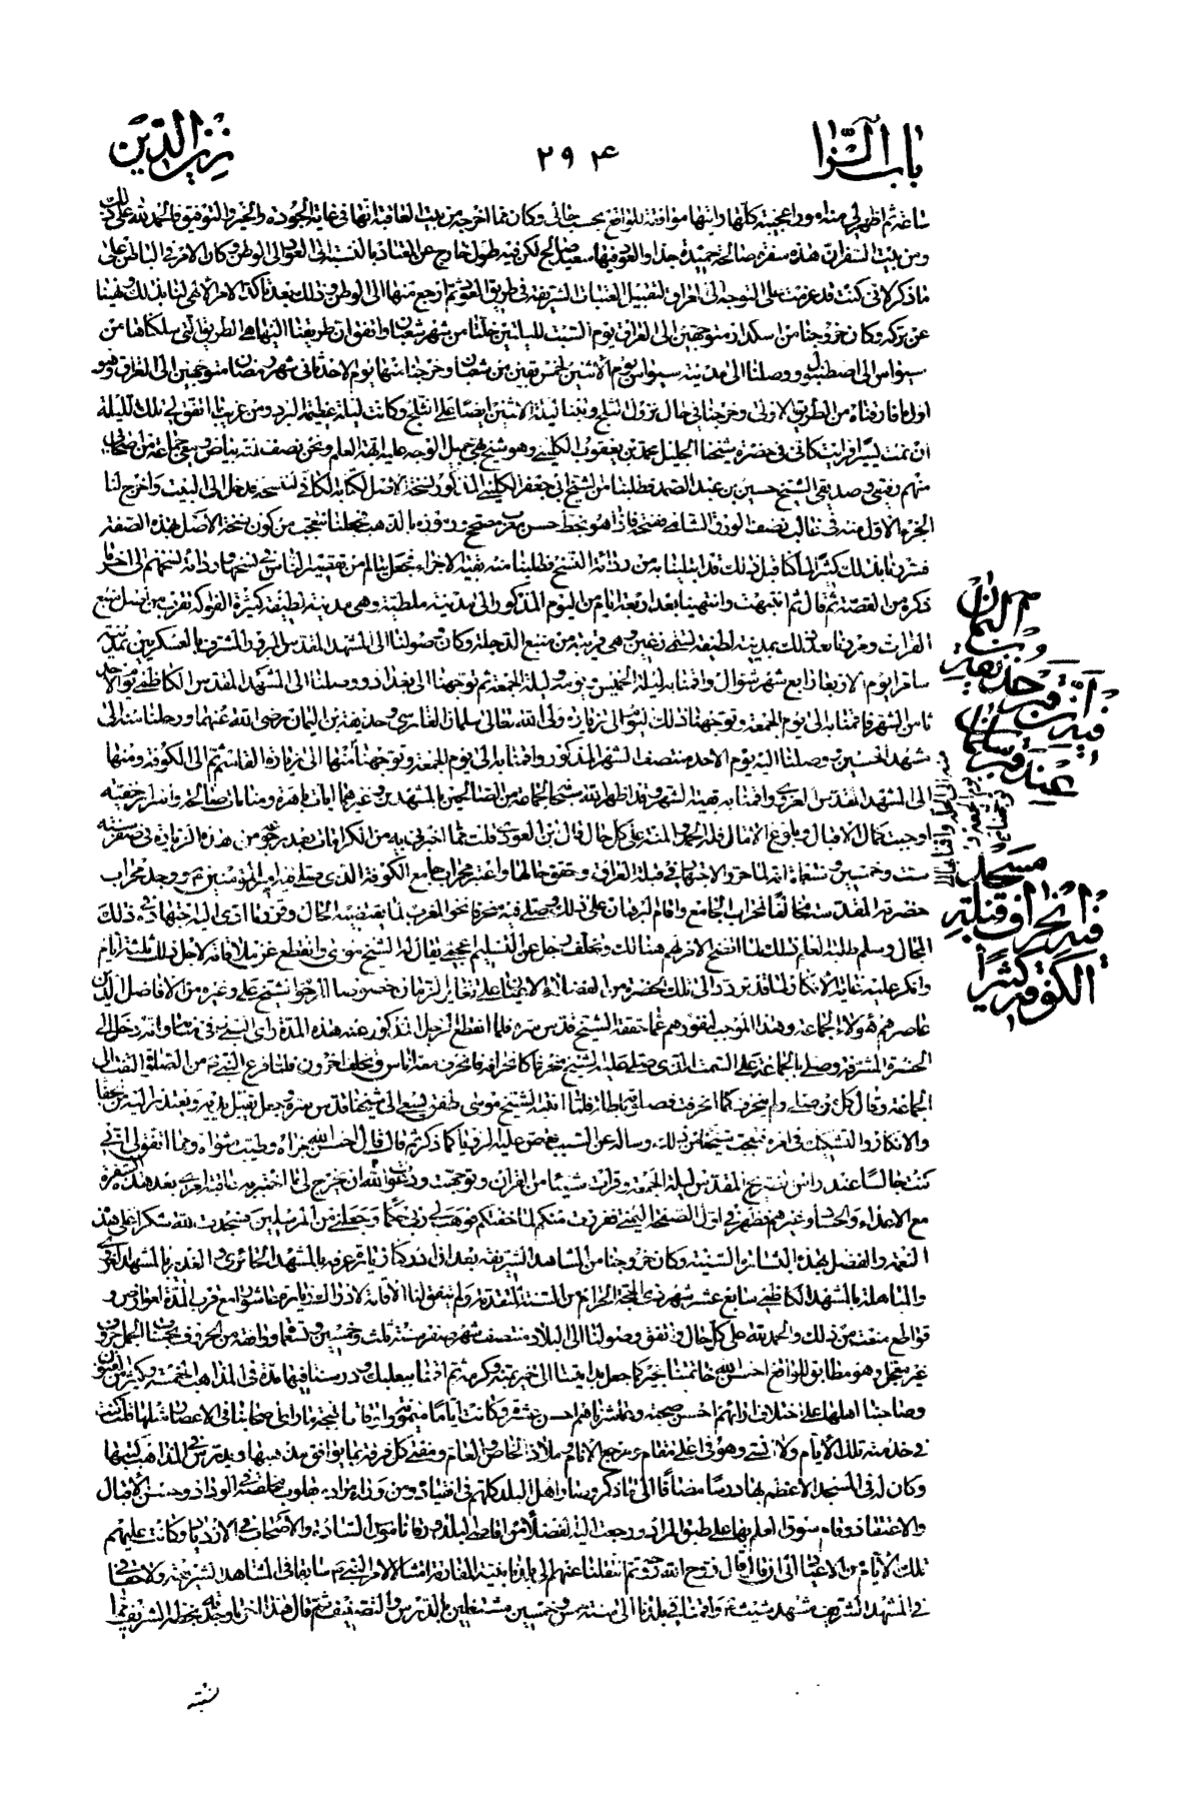 باب الزا
٢٩٤
زين الدين
ساعة ثم اظهر لي منه اوراد عجيبة كلها وانها موافقة للواقع بحسب حالي وكان مما اخرجه من بيت العاقبة انها في غاية الجودة والخير والتوفيق فالحمد لله على ذلك
ومن بيت السفر ان هذه سفرة صالحة حميدة جدا والعود فيها سعيد صالح لكن فيه طول خارج عن المعتاد بالنسبة الى العود الى الوطن وكان الامر في الباطن على
ما ذكر لاني كنت قد عزمت على التوجه الى العراق لتقبيل العتبات الشريفة في طريق العود ثم ارجع منها الى الوطن وذلك بعد تأكد الامر الالهي لنا بذلك ونهينا
عن تركه وكان خروجنا من اسكدار متوجهين الى العراق يوم السبت لليلتين خلتا من شهر شعبان واتفق ان طريقنا اليها هي الطريق التي سلكناها من
سيواس الى اصطنبول ووصلنا الى مدينة سيواس يوم الاثنين لخمس بقين من شعبان وخرجنا منها يوم الاحد ثاني شهر رمضان متوجهين الى العراق وهو
اول ما فارقناه من الطريق الاولى وخرجنا في حال نزول الثلج وبتنا ليلة الاثنين ايضا على الثلج وكانت ليلة عظيمة البرد ومن غريب ما اتفق لي تلك الليلة
ان نمت يسيرا فرايت كاني في حضرة شيخنا الجليل محمد بن يعقوب الكليني وهو شيخ بهي جميل الوجه عليه ابهة العلم ونحو نصف لمته بياض ومعي جماعة من اصحابي
منهم رفيقي وصديقي الشيخ حسين بن عبد الصمد فطلبنا من الشيخ ابي جعفر الكليني المذكور نسخة الاصل لكتابه الكافي لننسخه فدخل الى البيت واخرج لنا
الجزء الاول منه في قالب نصف الورق الشامي ففتحه فاذا هو بخط حسن معرب مصحح ورموزه بالذهب فجعلنا نتعجب من كون نسخة الاصل بهذه الصفة
فسررنا بذلك كثيرا لما كنا قبل ذلك قد ابتلينا به من ردائة النسخ فطلبنا منه بقية الاجزاء فجعل يتألم من تقصير الناس في نسخها ورداءة نسخهم الى اخر ما
ذكره من القصة ثم قال ثم انتبهت وانتهينا بعد اربعة ايام من اليوم المذكور الى مدينة ملطية وهي مدينة لطيفة كثيرة الفواكه تقرب من اصل منبع
الفرات ومررنا بعد ذلك بمدينة لطيفة تسمى زغين وهي قريبة من منبع الدجلة وكان وصولنا الى المشهد المقدس المبرور المشرف بالعسكريين بمدينة
سامرا يوم الاربعاء رابع شهر شوال واقمنا به ليلة الخميس ويومه وليلة الجمعة ثم توجهنا الى بغداد ووصلنا الى المشهد المقدس الكاظمي يوم الاحد
ثامن الشهر فاقمنا به الى يوم الجمعة وتوجهنا ذلك اليوم الى زيارة ولي الله تعالى سلمان الفارسي وحذيفة بن اليمان رضي الله عنهما ورحلنا منه الى
مشهد الحسين ع ووصلنا اليه يوم الاحد منتصف الشهر المذكور واقمنا به الى يوم الجمعة وتوجهنا منها الى زيارة القاسم ثم الى الكوفة ومنها
الى المشهد المقدس الغروي واقمنا به بقية الشهر وقد اظهر الله سبحانه لجماعة من الصالحين بالمشهدين وغيرهما ايات باهرة ومنامات صالحة واسرار خفية
اوجبت كمال الاقبال وبلوغ الامال فلله الحمد والمنة على كل حال قال بن العودي قلت مما اخبرني به من الكرامات بعد رجوعه من هذه الزيارة في صفر سنة
ست وخمسين وتسعمائة انه لما حرر الاجتهاد في قبلة العراق وحقق حالها واعتبر محراب جامع الكوفة الذي صلى فيه امير المؤمنين ع ووجد محراب
حضرته المقدسة مخالفا لمحراب الجامع واقام البرهان على ذلك وصلى فيه منحرفا نحو الغرب لما يقتضيه الحال وقرر ما ادى اليه اجتهاده في ذلك
المجال وسلم طلبة العلم ذلك لما اتضح الامر لهم هنالك وتخلف رجل عن التسليم اعجمي يقال له الشيخ موسى وانقطع عن ملاقاته لاجل ذلك ثلثة ايام
وانكر عليه غاية الانكار لما قد تردد الى تلك الحضرة من الفضلاء الاعيان على تغاير الزمان خصوصا المرحوم الشيخ علي وغيره من الافاضل الذين
عاصرهم هؤلاء الجماعة وهذا الموجب لنفورهم عما حققه الشيخ قدس سره فلما انقطع الرجل المذكور عنه هذه المدة راى النبي ص في منامه وانه دخل الى
الحضرة المشرفة وصلى بالجماعة على السمت الذي صلى عليه الشيخ منحرفا كانحرافه فانحرف معه اناس وتخلف اخرون فلما فرغ النبي ص من الصلوة التفت الى
الجماعة وقال كل من صلى ولم ينحرف كما انحرفت فصلاته باطلة فلما انتبه الشيخ موسى طفق يسعى الى شيخنا قدس سره وجعل يقبل يديه ويعتذر اليه من الجفا
والانكار والتشكيك في امره فتعجب شيخنا من ذلك وساله عن السبب فقص عليه الرؤيا كما ذكر ثم قال قال احسن الله جزاه وطيب مثواه ومما اتفق لي اني
كنت جالسا عند راس ضريح المقدس ليلة الجمعة وقرأت شيئا من القران وتوجهت ودعوت الله ان يخرج لي ما اختبر به عاقبة امري بعد هذه السفرة
مع الاعداء والحساد وغيرهم فظهر في اول الصفحة اليمنى ففررت منكم لما خفتكم فوهب لي ربي حكما وجعلني من المرسلين فسجدت لله شكرا على هذه
النعمة والفضل بهذه البشائر السنية وكان خروجنا من المشاهد الشريفة بعد ان ادركنا زيارة عرفة بالمشهد الحائري والغدير بالمشهد الغروي
والمباهلة بالمشهد الكاظمي سابع عشر شهر ذي الحجة الحرام من السنة المتقدمة ولم يتفق لنا الاقامة لادراك زيارة عاشورا مع قرب المدة لعوارض و
قواطع منعت من ذلك والحمد لله على كل حال واتفق وصولنا الى البلاد منتصف شهر صفر سنة ثلث وخمسين وتسعمائة ووافقه من الحروف بحساب الجمل حروف
خير معجل وهو مطابق للواقع احسن الله خاتمتنا بخير كما جعل بدايتنا الى خير بمنه وكرمه ثم اقمنا ببعلبك ودرسنا فيها مدة في المذاهب الخمسة وكثير من الفنون
وصاحبنا اهلها على اختلاف ارائهم احسن صحبة وعاشرناهم احسن عشرة وكانت اياما ميمونة واوقاتا بهجة ما راى اصحابنا في الاعصار مثلها قلت كنت
في خدمته تلك الايام ولا انسى وهو في اعلى مقام ومرجع الانام وملاذ الخاص والعام ومفتي كل فرقة بما يوافق مذهبها ويدرس في المذاهب كتبها
وكان له في المسجد الاعظم بها درسا مضافا الى ما ذكر وصار اهل البلد كلهم في انقياده ومن وراء مراده بقلوب مخلصة في الوداد وحسن الاقبال
والاعتقاد وقام سوق العلم بها على طبق المراد ورجعت اليه الفضلاء من اقاصي البلاد ورقا ناموس السادة والاصحاب في الازدياد وكانت عليهم
تلك الايام من الاعياد الى ان قال قال روح الله روحه ثم انتقلنا عنهم الى بلدنا بنية المفارقة امتثالا لامر النبي ص سابقا في المشاهد الشريفة ولاحقا
في المشهد الشريف مشهد شيث ع واقمنا في بلدنا الى سنة خمس وخمسين مشتغلين بالدرس والتصنيف ثم قال هذا اخر ما وجد بخطه الشريف مما
نسبته
فيه ان قبر حذيفة بن اليمان عند قبر سلمان
مسجد
فيه انحراف قبلة
الكوفة كثيرا